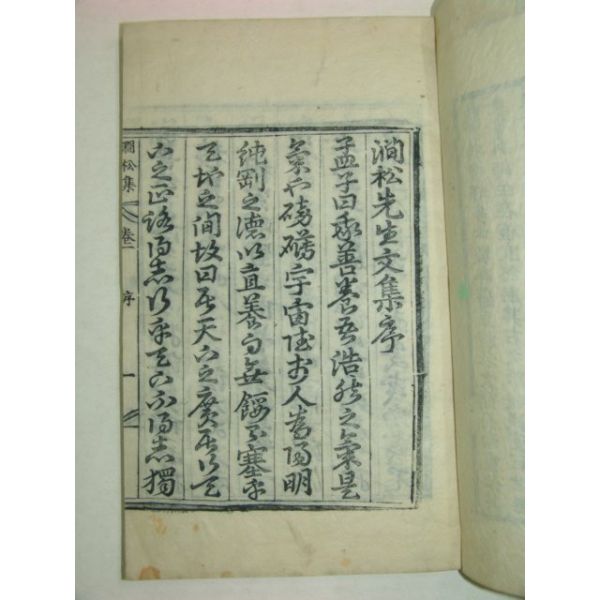 澗松先生文集序
孟子曰我善養吾浩然之氣是
氣也磅礴宇宙於人爲陽明
純剛之德以直養而無餒塞乎
天地之間故曰居天下之廣居行天
下之正路得志行乎天下不得志獨
澗松集 卷一 序 一